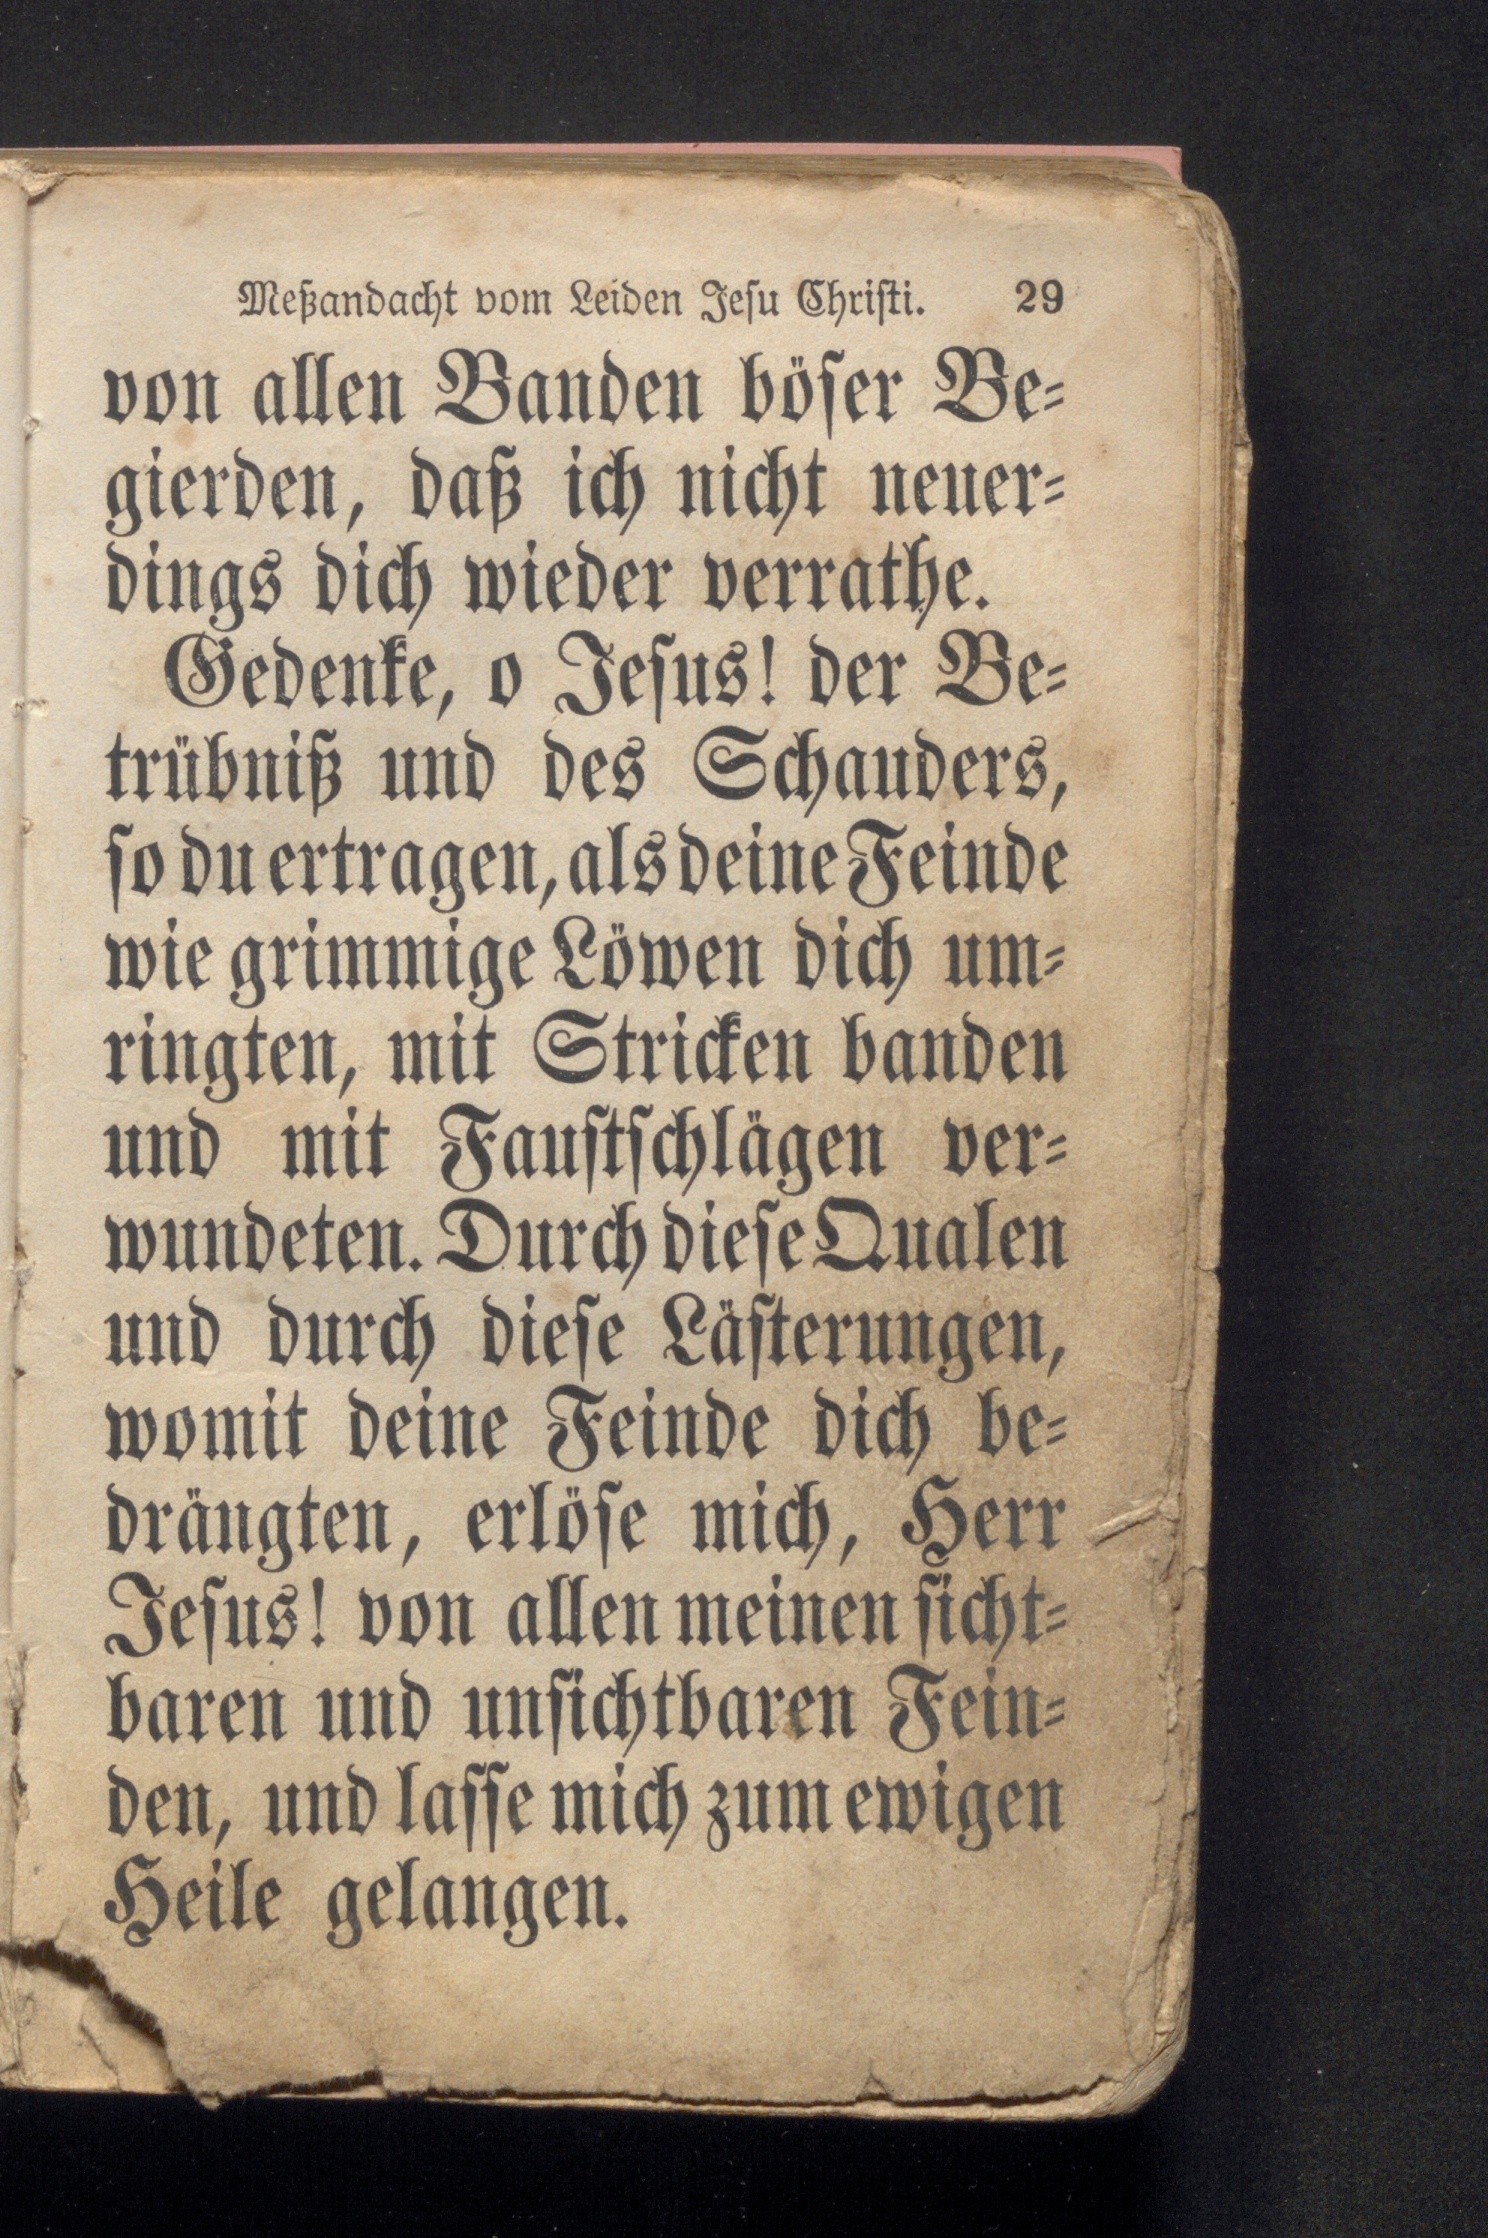 Meßandacht vom Leiden Jeſu Chriſti. 29
von allen Banden böſer Be-
gierden, daß ich nicht neuer-
dings dich wieder verrathe.
Gedenke, o Jeſus! der Be-
trübniß und des Schauders,
ſo du ertragen, als deine Feinde
wie grimmige Löwen dich um-
ringten, mit Stricken banden
und mit Fauſtſchlägen ver-
wundeten. Durch dieſe Qualen
und durch dieſe Läſterungen,
womit deine Feinde dich be-
drängten, erlöſe mich, Herr
Jeſus! von allen meinen ſicht-
baren und unſichtbaren Fein-
den, und laſſe mich zum ewigen
Heile gelangen.